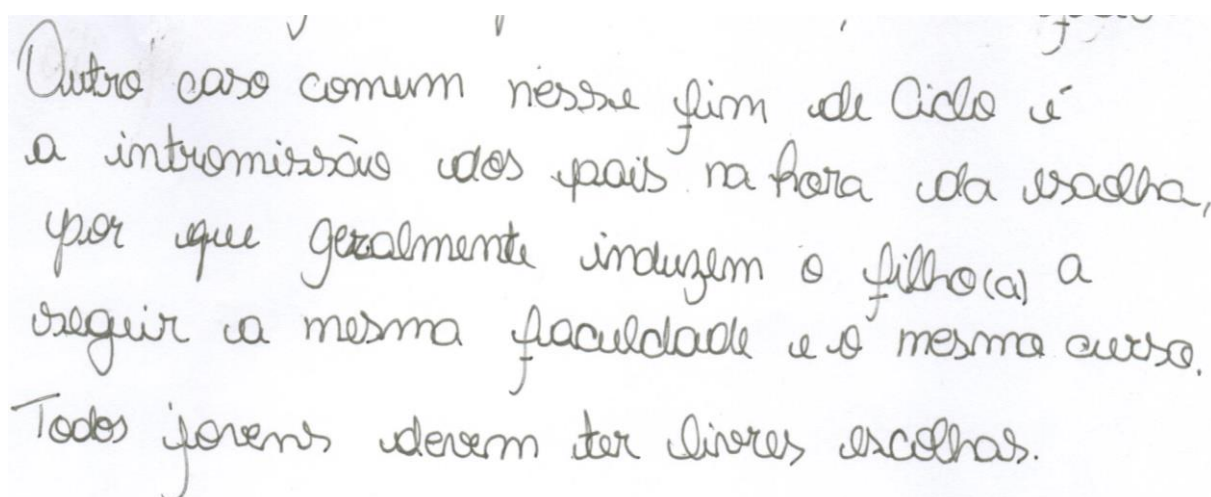 Outro caso comum nesse fim de Ciclo é
a intromissão dos pais na hora da escolha,
por que geralmente induzem o filho(a) a
seguir a mesma faculdade e o mesmo curso.
Todos jovens devem ter livres escolhas.